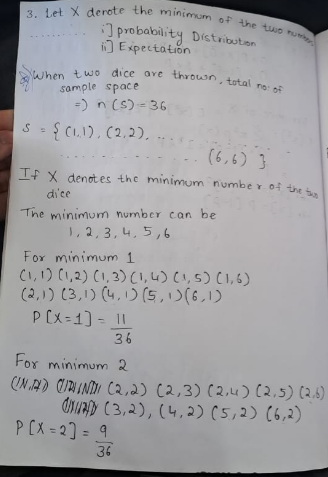 3. Let X denote the minimum of the two numbers
.......... i] probability Distribution
ii] Expectation
When two dice are thrown, total no: of
sample space
=) n (S) = 36
S = { (1,1), (2,2), ..............
.............. (6,6) }
If X denotes the minimum number of the two
dice
The minimum number can be
1, 2, 3, 4, 5, 6
For minimum 1
(1,1) (1,2) (1,3) (1,4) (1,5) (1,6)
(2,1) (3,1) (4,1) (5,1) (6,1)
P[X=1] = 11/36
For minimum 2
(2,2) (2,3) (2,4) (2,5) (2,6)
(3,2), (4,2) (5,2) (6,2)
P[X=2] = 9/36